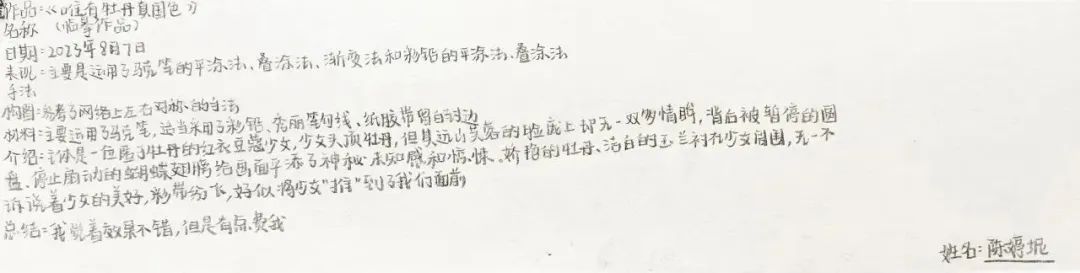 作品:《唯有牡丹真国色》
名称 (临摹作品)
日期:2023年8月7日
表现:主要是运用了马克笔的平涂法、叠涂法、渐变法和彩铅的平涂法、叠涂法
手法
构图:参考了网络上左右对称的手法
材料:主要运用了马克笔,适当采用了彩铅、秀丽笔勾线、纸胶带留白封边
介绍:主体是一位居于牡丹的红衣豆蔻少女,少女头顶牡丹,但其远山芙蓉的脸庞上却无一双多情眸,背后被暂停的圆
盘、停止扇动的蝴蝶翅膀给画面平添了神秘、未知感和惊悚。娇艳的牡丹、洁白的玉兰衬在少女周围,无一不
诉说着少女的美好,彩带纷飞,好似将少女"推"到了我们面前
总结:我觉着效果不错,但是有点费我
姓名:陈婷妮